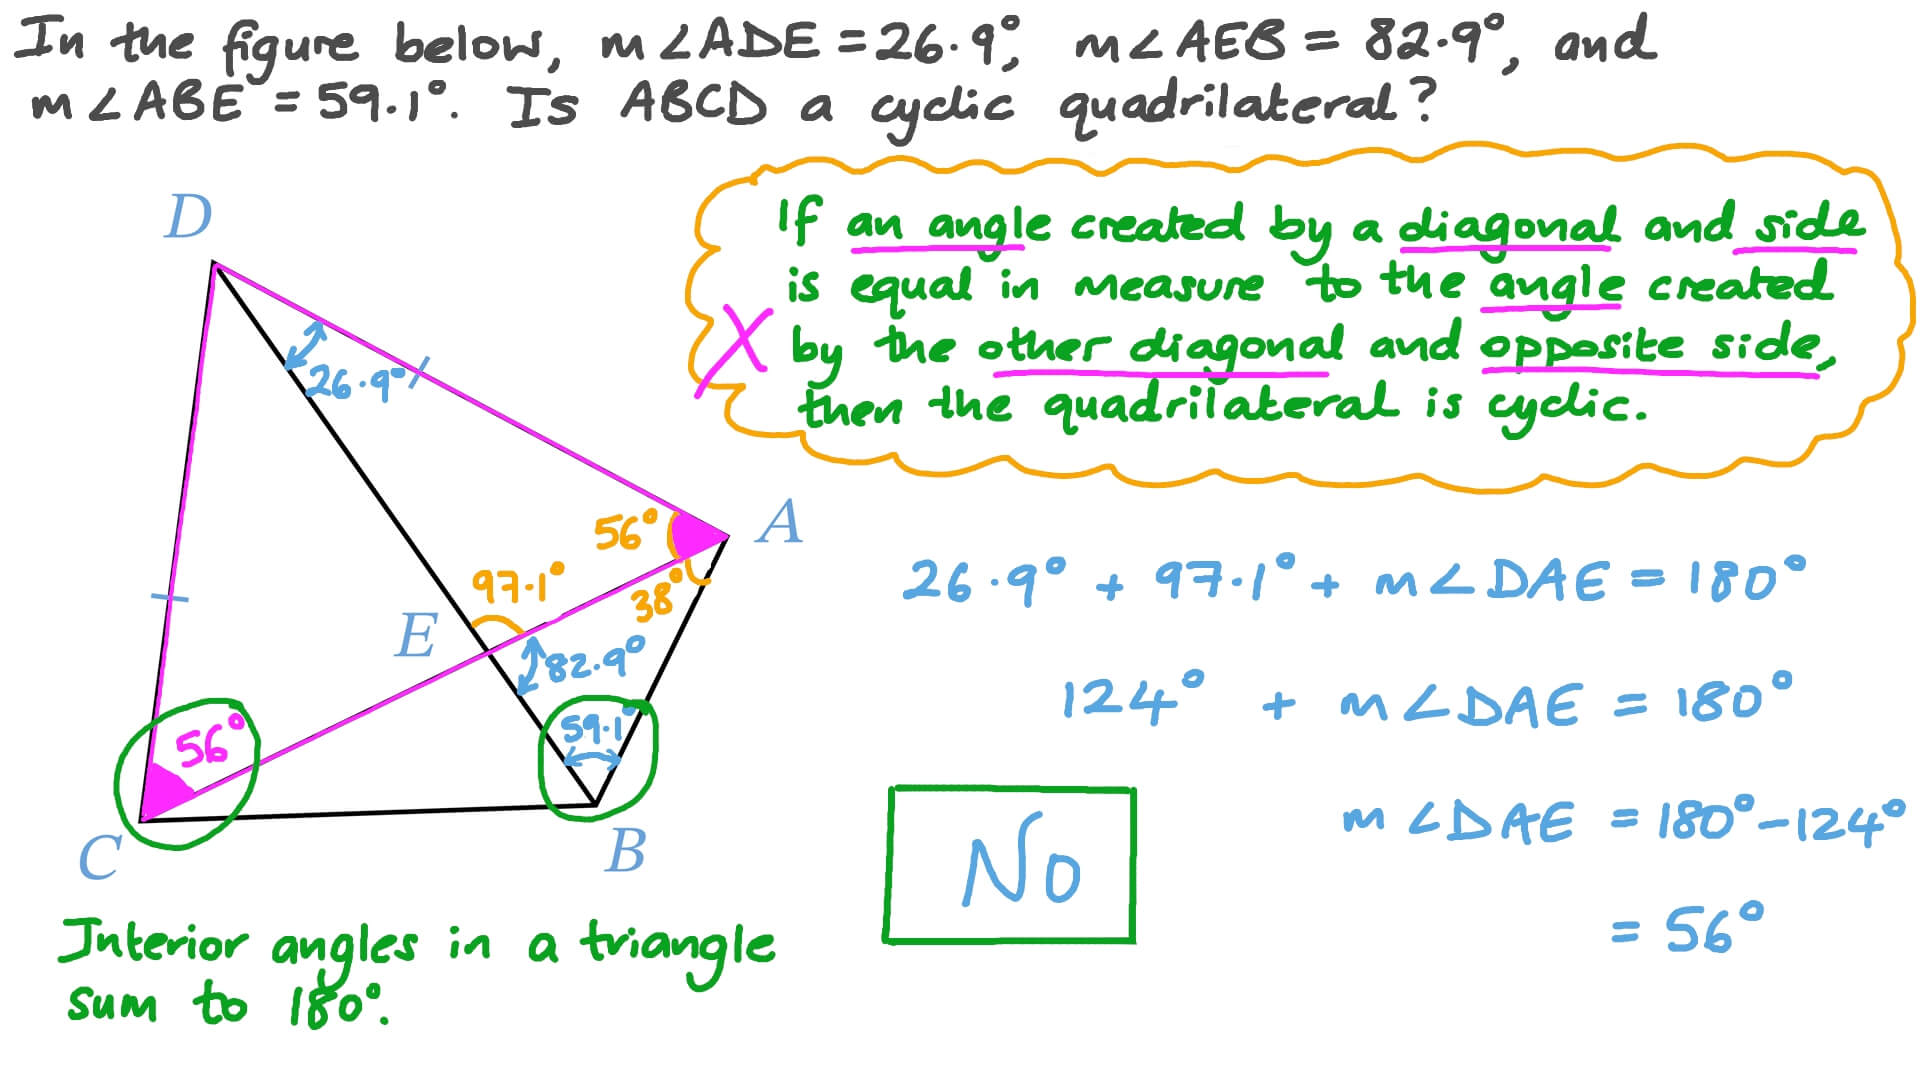 In the figure below, m∠ADE = 26.9°, m∠AEB = 82.9°, and
m∠ABE = 59.1°. Is ABCD a cyclic quadrilateral?
If an angle created by a diagonal and side
is equal in measure to the angle created
by the other diagonal and opposite side,
then the quadrilateral is cyclic.
D
26.9°
A
56°
97.1°
38°
E
82.9°
59.1°
56°
C
B
26.9° + 97.1° + m∠DAE = 180°
124° + m∠DAE = 180°
m∠DAE = 180° - 124°
= 56°
No
Interior angles in a triangle
sum to 180°.